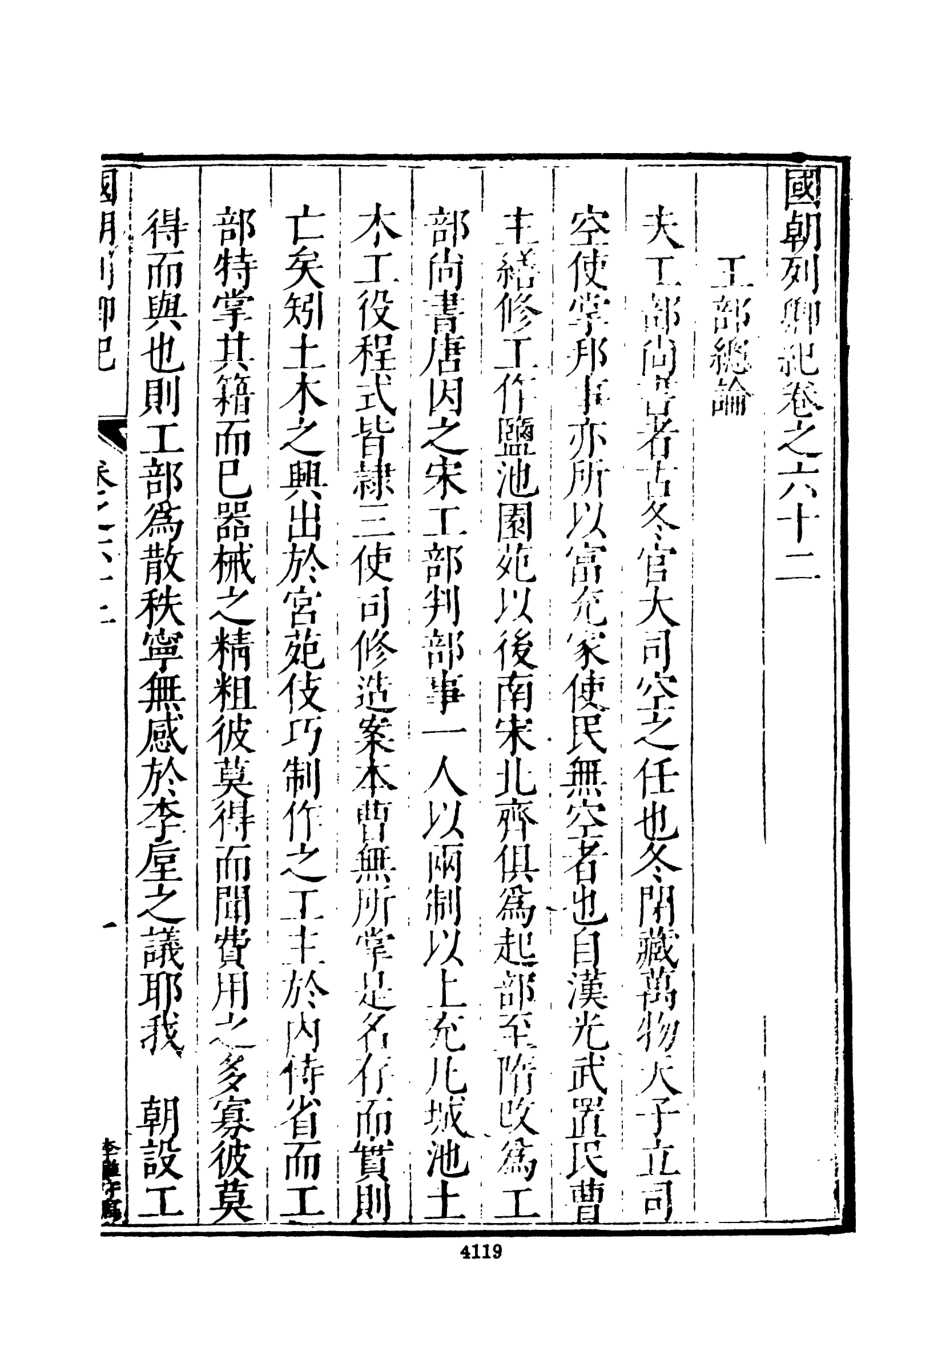 國朝列卿紀卷之六十二
工部總論
夫工部尚書者古冬官大司空之任也冬閉藏萬物天子立司
空使掌邦事亦所以富充家使民無空者也自漢光武置民曹
主繕修工作鹽池園苑以後南宋北齊俱為起部至隋改為工
部尚書唐因之宋工部判部事一人以兩制以上充凡城池土
木工役程式皆隷三使司修造案本曹無所掌是名存而實則
亡矣矧土木之興出於宮苑伎巧制作之工主於內侍省而工
部特掌其籍而已器械之精粗彼莫得而聞費用之多寡彼莫
得而與也則工部為散秩寧無感於李垕之議耶我 朝設工
國朝列卿紀 卷之六十二 一
4119